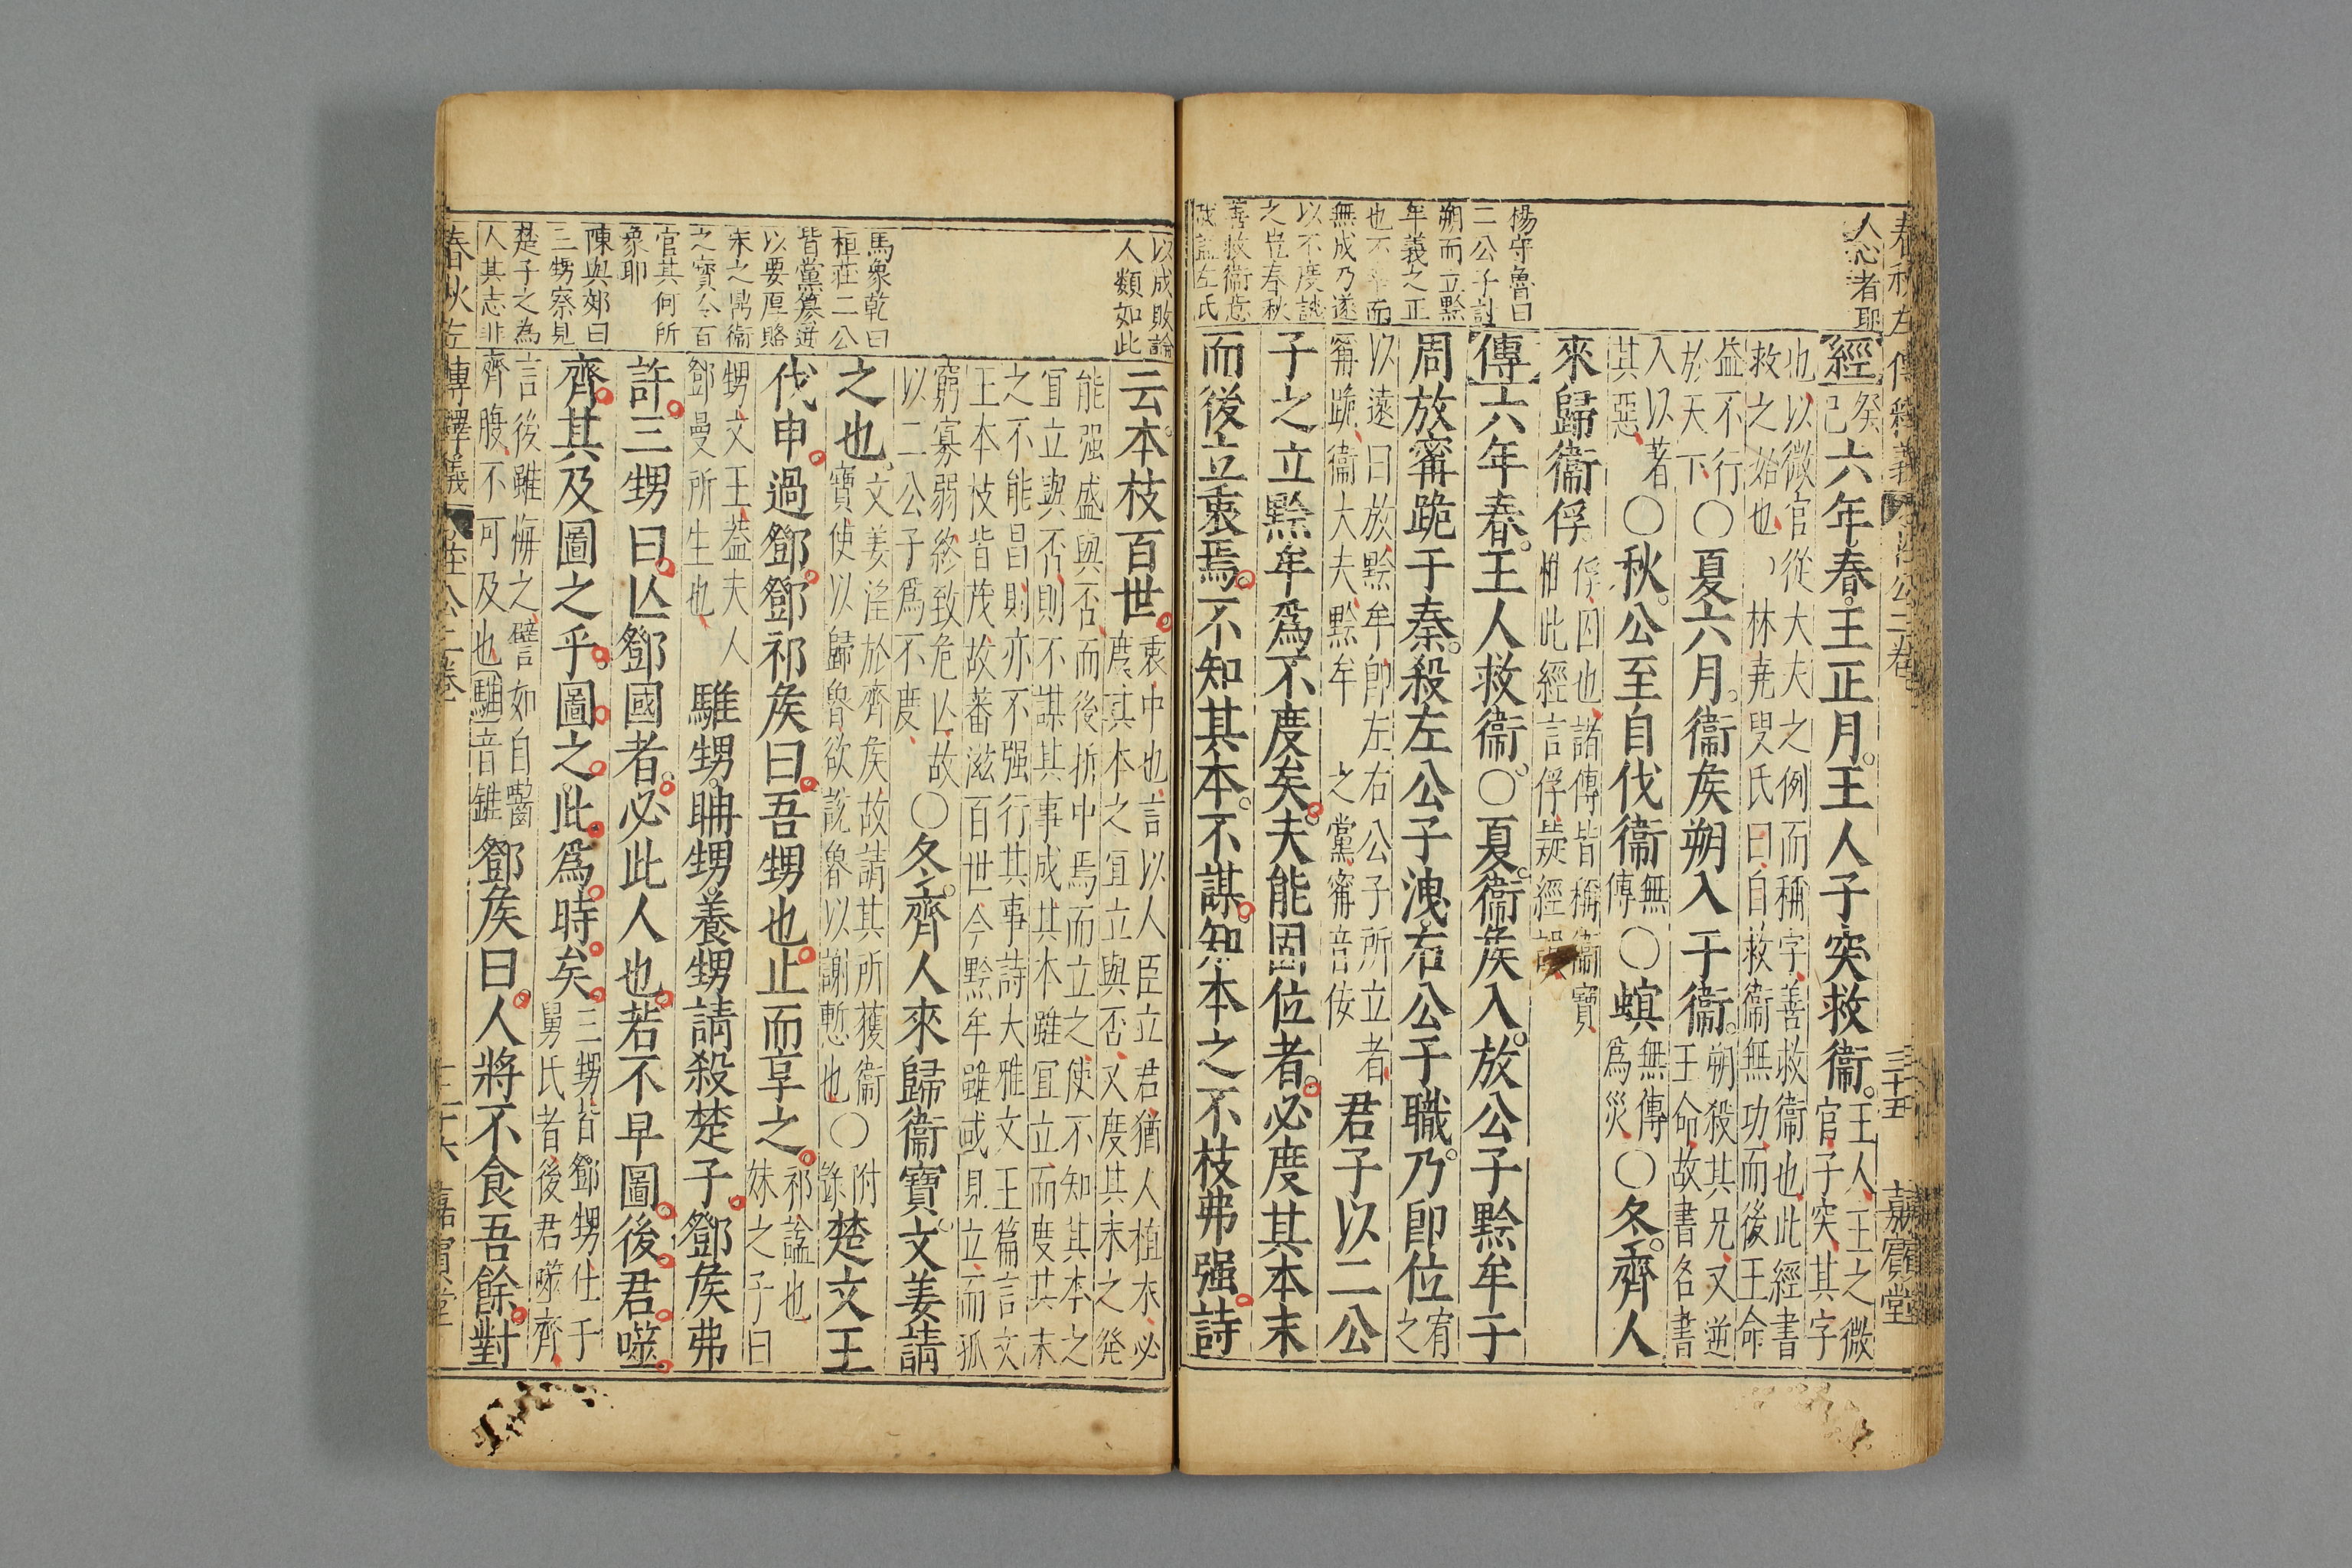 春秋左傳釋義 莊公二卷 三十五 嘉賓堂
人心者耶
楊守魯曰
二公子討
朔而立黔
年義之正
也不幸而
無成乃遂
以不度談
之豈春秋
善救衞意
哉誣左氏
經癸己六年春。王正月。王人子突救衞。王人、王之微官、子突、其字
也、以微官從大夫之例而稱字、善救衞也、此經書救之始也、林堯叟氏曰、自救衞無功、而後王命
益不行於天下○夏六月。衞矦朔入于衞。朔殺其兄、又逆王命、故書名書
入以著其惡、○秋。公至自伐衞無傳○螟無傳爲災、○冬。齊人
來歸衞俘。俘、囚也、諸傳皆稱衞寶、惟此經言俘、疑經誤、
傳六年春。王人救衞。○夏。衞矦入。放公子黔牟于
周放甯跪于秦。殺左公子洩。右公子職。乃卽位宥之
以遠曰放、黔牟、卽左右公子所立者、甯跪、衞大夫、黔牟之黨、甯音佞君子以二公
子之立黔牟爲不度矣。夫能固位者。必度其本末
而後立衷焉。不知其本。不謀。知本之不枝弗强。詩
以成敗論
人類如此
馬象乾曰
桓莊二公
皆黨篡逆
以要厚賂
宋之鼎衞
之寶今百
官其何所
象耶
陳與郊曰
三甥察見
楚子之為
人其志非
云。本枝百世。衷、中也、言以人臣立君、猶人植木、必度其本之宜立與否、又度其末之發
能强盛與否、而後折中焉而立之、使不知其本之宜立與否、則不謀其事成、其本雖宜立、而度其末
之不能昌、則亦不强行其事、詩大雅文王篇言文王本枝皆茂、故蕃滋百世、今黔牟雖或見立、而孤
窮寡弱、終致危亾、故以二公子爲不度、○冬。齊人來歸衞寶。文姜請
之也。文姜淫於齊矦、故請其所獲衞寶、使以歸魯、欲說魯以謝慙也、○附錄楚文王
伐申。過鄧。鄧祁矦曰。吾甥也。止而享之。祁、諡也、妹之子曰
甥、文王、益夫人鄧曼所生也、騅甥。聃甥。養甥。請殺楚子。鄧矦弗
許。三甥曰。亾鄧國者。必此人也。若不早圖。後君噬
齊。其及圖之乎。圖之。此爲時矣。三甥、皆鄧甥、仕于舅氏者、後君噬齊、
言後雖悔之、譬如自齧齊腹、不可及也、騅音錐鄧矦曰。人將不食吾餘。對
春秋左傳釋義 莊公二卷 三十六 嘉賓堂